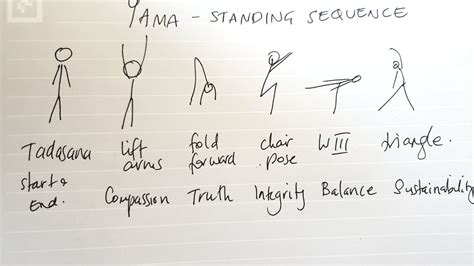 YAMA - STANDING SEQUENCE
Tadasana lift arms fold forward chair pose WIII triangle.
start & End. Compassion Truth Integrity Balance Sustainability